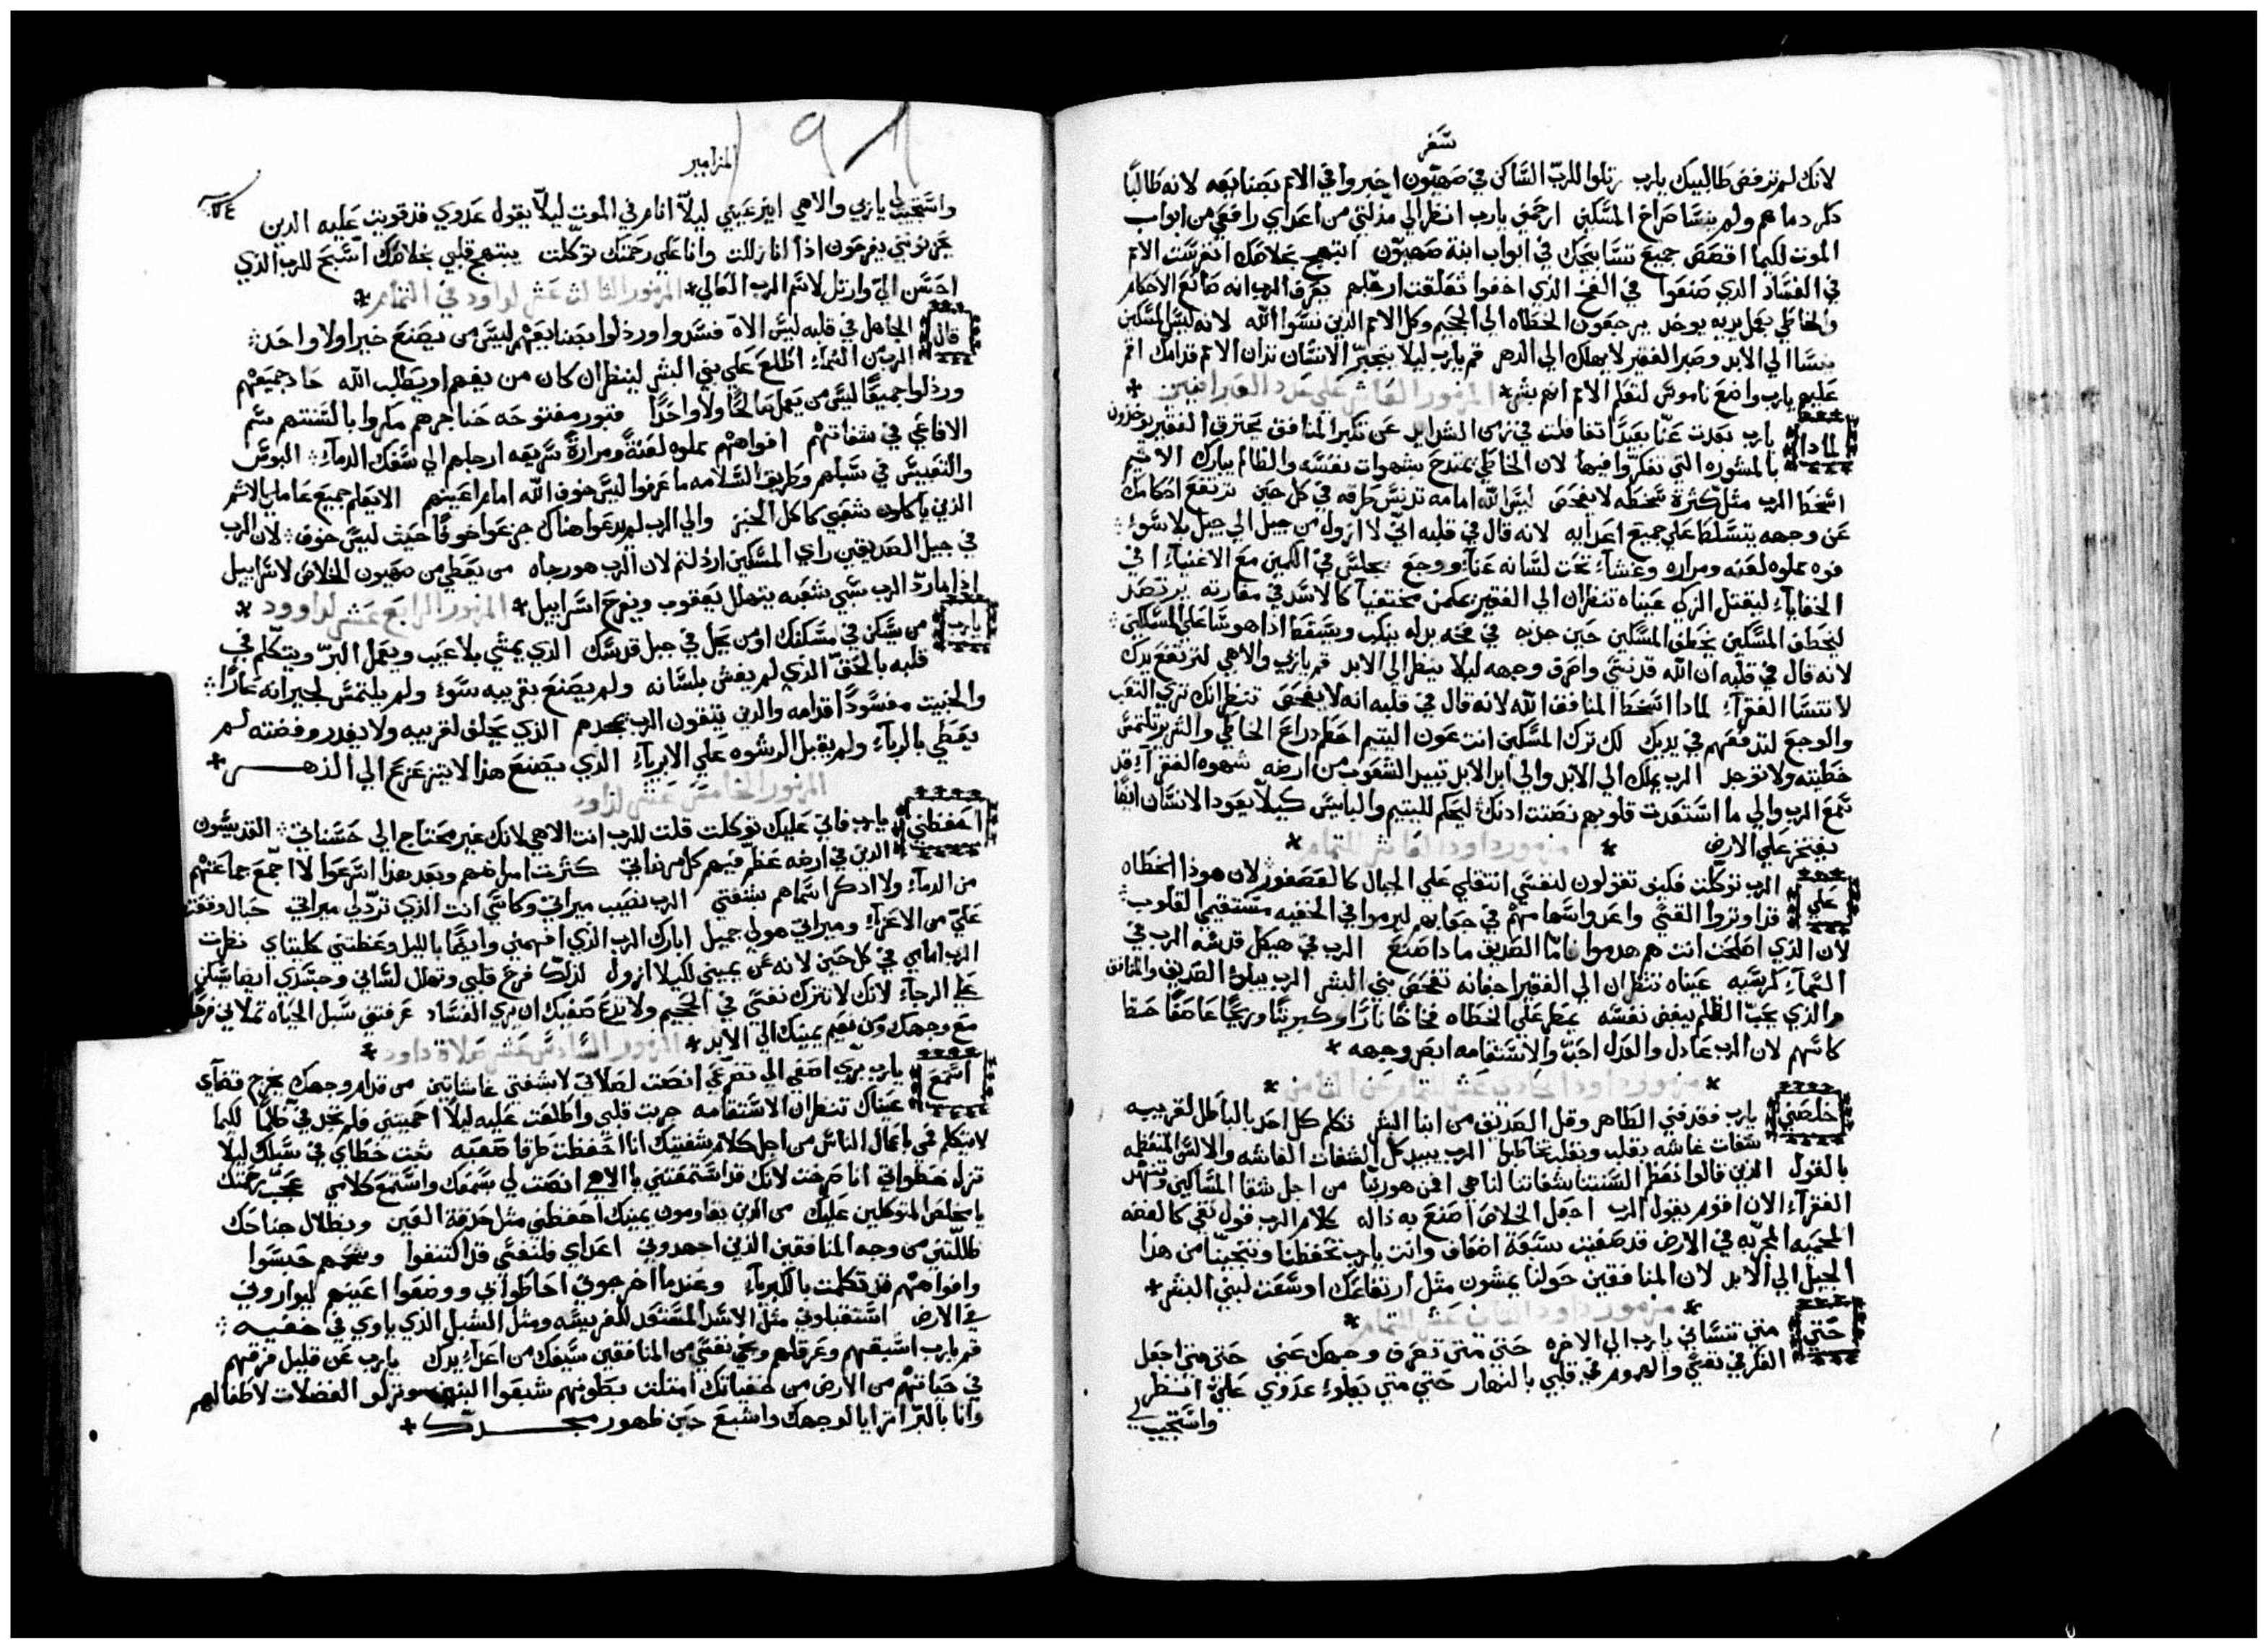 سفر
لانك لم ترفض طالبيك يارب رتلوا للرب الساكن في صهيون اخبروا في الامم بصنايعه لانه طالبًا
دكر دماهم ولم ينسا صراخ المسكين ارحمني يارب انظر الي مذلتي من اعداي رافعي من ابواب
الموت لكيما اقصص جميع تسابيحك في ابواب ابنة صهيون ابتهج بخلاصك انغرست الامم
في الفساد الدي صنعوا في الفخ الذي اخفوا تعلقت ارجلهم يعرف الرب انه صانع الاحكام
والخاطي بعمل يديه يوخد يرجعون الخطاه الي الجحيم وكل الامم الذين نسوا الله لانه ليس المسكين
ينسا الي الابد وصبر الفقير لا يهلك الي الدهر قم يارب ليلا يتجبر الانسان تدان الامم قدامك اقم
عليهم يارب واضع ناموس لتعلم الامم انهم بشر المزمور العاشر علي عدد العبرانيين
لمادا يارب بعدت عنا بعيدًا تغافلت في زمن الشدايد عن تكبر المنافق يحترق الفقير يوخدون
بالمشوره التي تفكروا فيها لان الخاطي يمتدح بشهوات نفسه والظالم يبارك الاثيم
اسخط الرب مثل كثرة سخطه لا يفحص ليس الله امامه تدنس طرقه في كل حين ترتفع احكامك
عن وجهه يتسلط علي جميع اعدايه لانه قال في قلبه اني لا ازول من جيل الي جيل بلا سوء
فوه مملوه لعنه ومراره وغشاء تحت لسانه عناء ووجع يجلس في الكمين مع الاغنياء في
الخفاياء ليقتل الزكي عيناه تنظران الي الفقير يكمن مختفيًا كالاسد في مغارته يرتصد
ليخطف المسكين يخطف المسكين حين جذبه في فخه يذله ينكب ويسقط اذا هو سا علي المسكين
لانه قال في قلبه ان الله قد نسي واصرف وجهه ليلا ينظر الي الابد قم ياربي والاهي لترتفع يدك
لا تنسا الفقراء لمادا اسخط المنافق الله لانه قال في قلبه انه لا يفحص تنظر انك تري التعب
والوجع لتدفعهم في يديك لك ترك المسكين انت عون اليتيم احطم دراع الخاطي والشرير تلتمس
خطيته ولا توجد الرب يملك الي الابد والي ابد الابد تبيد الشعوب من ارضه شهوه الفقراء قد
سمع الرب والي ما استعدت قلوبهم نصتت ادنك ليحكم لليتيم والبايس كيلا يعود الانسان ايضًا
يفتخر علي الارض مزمور داود العاشر للتمام
علي الرب توكلت فكيف تقولون لنفسي انتقلي علي الجبال كالعصفور لان هوذا الخطاه
قد اوتروا القسي واعدوا سهامهم في جعابهم ليرموا في الخفيه مستقيمي القلوب
لان الذي اصلحت انت هم هدموا فاما الصديق مادا صنع الرب في هيكل قدسه الرب في
السماء كرسيه عيناه تنظران الي الفقير اجفانه تفحص بني البشر الرب يبلو الصديق والمنافق
والذي يحب الظلم يبغض نفسه يمطر علي الخطاه فخاخًا نارًا وكبريتًا وريحًا عاصفًا حظ
كاسهم لان الرب عادل والعدل احب والاستقامه ابصر وجهه
مزمور داود الحادي عشر للتمام عن الثامن
خلصني يارب فقد فني الطاهر وقل الصديق من ابنا البشر تكلم كل احد بالباطل لقريبه
شفات غاشه بقلب وبقلب تخاطبوا الرب يبيد كل الشفات الغاشه والالسن المتعظمه
بالقول الذين قالوا نعظم السنتنا شفاتنا لنا هي فمن هو ربنا من اجل شقا المساكين وتنهد
الفقراء الان اقوم يقول الرب اجعل الخلاص اصنع به ذاله كلام الرب قول نقي كالفضه
المحميه المجربه في الارض قد صفيت سبعة اضعاف وانت يارب تحفظنا وتنجينا من هذا
الجيل الي الابد لان المنافقين حولنا يمشون مثل ارتفاعك اوسعت لبني البشر
مزمور داود الثاني عشر للتمام
حتي متي تنساني يارب الي الاخره حتي متي تصرف وجهك عني حتي متي اجعل
الفكر في نفسي والهموم في قلبي بالنهار حتي متي يعلوء عدوي علي انظر
واستجيب لي
المزامير
واستجيب لي ياربي والاهي انير عيني ليلا انام في الموت ليلا يقول عدوي قد قويت عليه الدين
يحزنونني يفرحون اذا انا زللت وانا علي رحمتك توكلت يبتهج قلبي بخلاصك اسبح للرب الذي
احسن الي وارتل لاسم الرب العالي المزمور الثالث عشر لداود في التمام
قال الجاهل في قلبه ليس الاه فسدوا ورذلوا بصنايعهم ليس من يصنع خيرا ولا واحد
الرب من السماء اطلع علي بني البشر لينظر ان كان من يفهم او يطلب الله حاد جميعهم
ورذلوا جميعًا ليس من يعمل صالحًا ولا واحدًا قبور مفتوحه حناجرهم مكروا بالسنتهم سم
الافاعي في شفاتهم افواههم مملوه لعنةً ومرارةً سريعه ارجلهم الي سفك الدماء البوس
والتعيس في سبلهم وطريق السلامه ما عرفوا ليس خوف الله امام اعينهم الا يعلم جميع عاملي الاثم
الذين ياكلون شعبي كاكل الخبز والي الرب لم يدعوا هناك جزعوا خوفًا حيت ليس خوف لان الرب
في جيل الصديقين راي المسكين ارذلتم لان الرب هو رجاه من يعطي من صهيون الخلاص لاسراييل
اذا مارد الرب سبي شعبه يتهلل يعقوب ويفرح اسراييل المزمور الرابع عشر لداوود
يارب من يسكن في مسكنك او من يحل في جبل قدسك الذي يمشي بلا عيب ويعمل البر ويتكلم في
قلبه بالحق الذي لم يغش بلسانه ولم يصنع بقريبه سوء ولم يلتمس لجيرانه عارًا
والخبيت مفسودًا قدامه والدين يتقون الرب يمجدهم الذي يحلف لقريبه ولا يغدر وفضته لم
يعطي بالرباء ولم يقبل الرشوه علي الابرياء الذي يصنع هذا لا يتزعزع الي الدهر
المزمور الخامس عشر لداود
احفظني يارب فاني عليك توكلت قلت للرب انت الاهي لانك غير محتاج الي حسناتي القديسون
الذين في ارضه عظم فيهم كل مرضاتي كثرت امراضهم وبعد هذا اسرعوا لا اجمع جماعتهم
من الدماء ولا ادكر اسماهم بشفتي الرب نصيب ميراثي وكاسي انت الذي تردلي ميراتي حبال وقعت
علي من الاعزاء وميراتي هو لي جميل ابارك الرب الذي افهمني وايضًا بالليل وعظتني كليتاي نظرت
الرب امامي في كل حين لانه عن يميني لكيلا ازول لذلك فرح قلبي وتهلل لساني وجسدي ايضا يسكن
علي الرجاء لانك لا تترك نفسي في الجحيم ولا تدع صفيك ان يري الفساد عرفتني سبل الحياه تملاني فرحًا
مع وجهك ومن نعيم يمينك الي الابد المزمور السادس عشر صلاة داود
استمع يارب بري اصغي الي تضرعي انصت لصلاتي لا بشفتي غاشاتين من قدام وجهك يخرج قضاي
عيناك تنظران الاستقامه جربت قلبي واطلعت عليه ليلًا احميتني فلم تجد في ظلمًا لكيما
لا يتكلم فمي باعمال الناس من اجل كلام شفتيك انا احتفظت طرقا صعبه ثبت خطاي في سبلك ليلا
تزل خطواتي انا صرخت لانك قد استمعتني ياالاهي انصت لي بسمعك واستمع كلامي عجب رحمتك
يا مخلص المتوكلين عليك من الذين يقاومون يمينك احفظني مثل حدقة العين وبظلال جناحك
ظللني من وجه المنافقين الذين اجهدوني اعداي فلنفسي قد اكتنفوا وشحمهم حبسوا
وافواههم قد تكلمت بالكبرياء وعندما اخرجوني احاطوا بي ووضعوا اعينهم ليواروني
في الارض استقبلوني مثل الاسد المستعد للفريسه ومثل الشبل الذي ياوي في خفيه
قم يارب اسبقهم وعرقلهم ونجي نفسي من المنافقين سيفك من اعداء يدك يارب عن قليل فرقهم
في حياتهم من الارض من خفياتك امتلت بطونهم شبعوا البنين وتركوا الفضلات لاطفالهم
وانا بالبر اترايا لوجهك واشبع حين ظهور مجدك